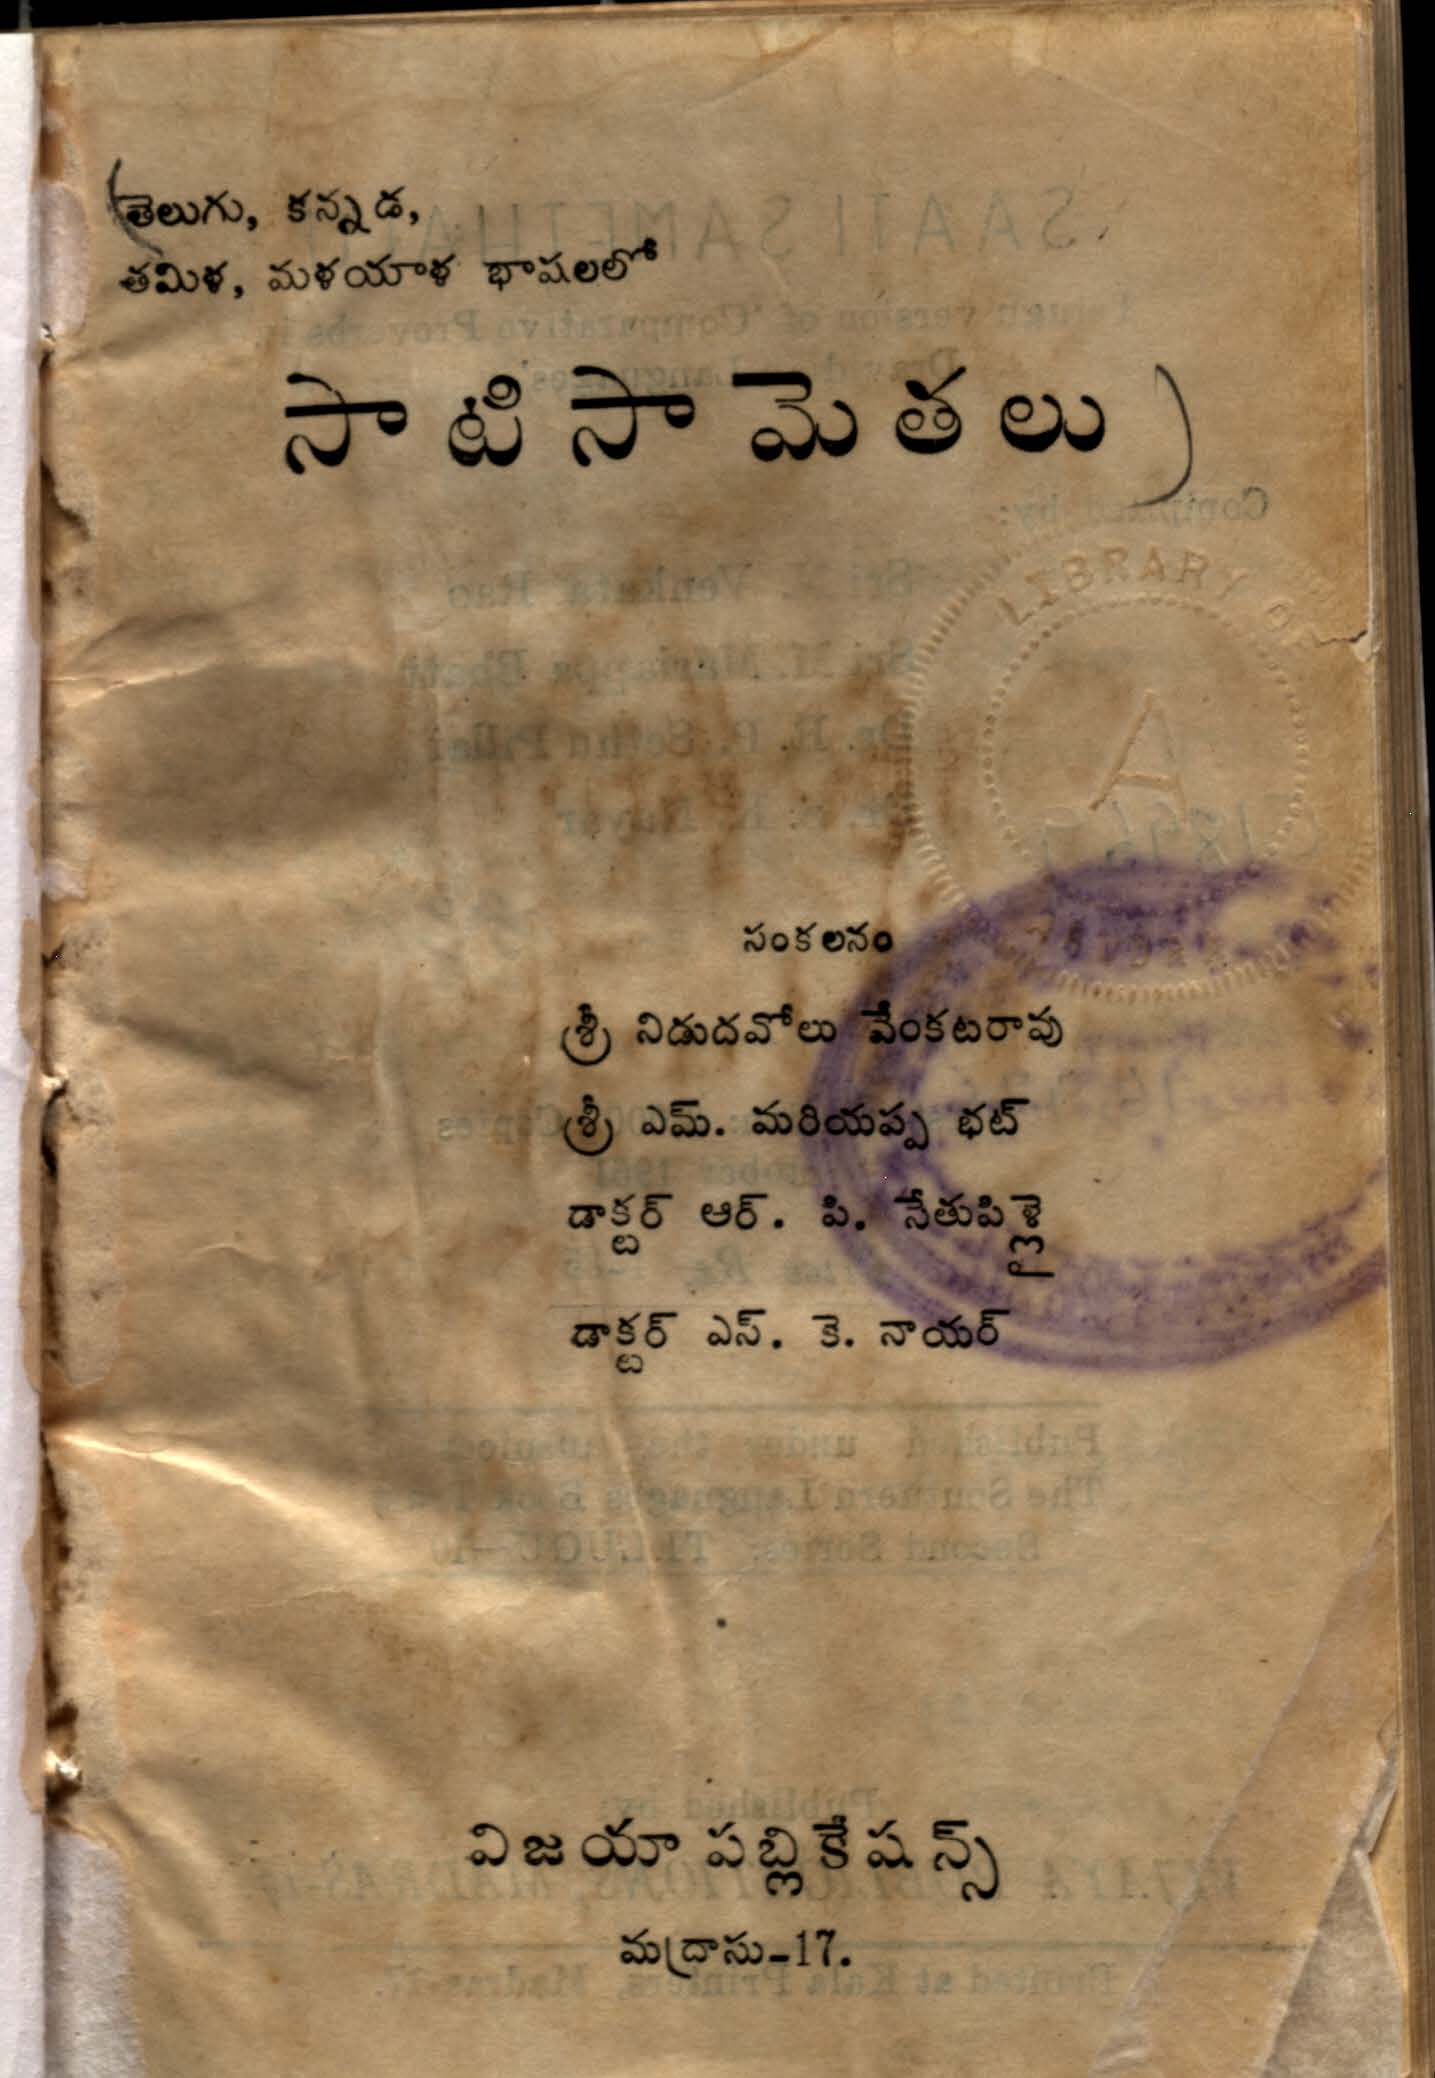 తెలుగు, కన్నడ,
తమిళ, మళయాళ భాషలలో
సాటిసామెతలు
LIBRARY OF
A
సంకలనం
శ్రీ నిడుదవోలు వేంకటరావు
శ్రీ ఎమ్. మరియప్ప భట్
డాక్టర్ ఆర్. పి. సేతుపిళ్లై
డాక్టర్ ఎస్. కె. నాయర్
విజయా పబ్లికేషన్స్
మద్రాసు-17.